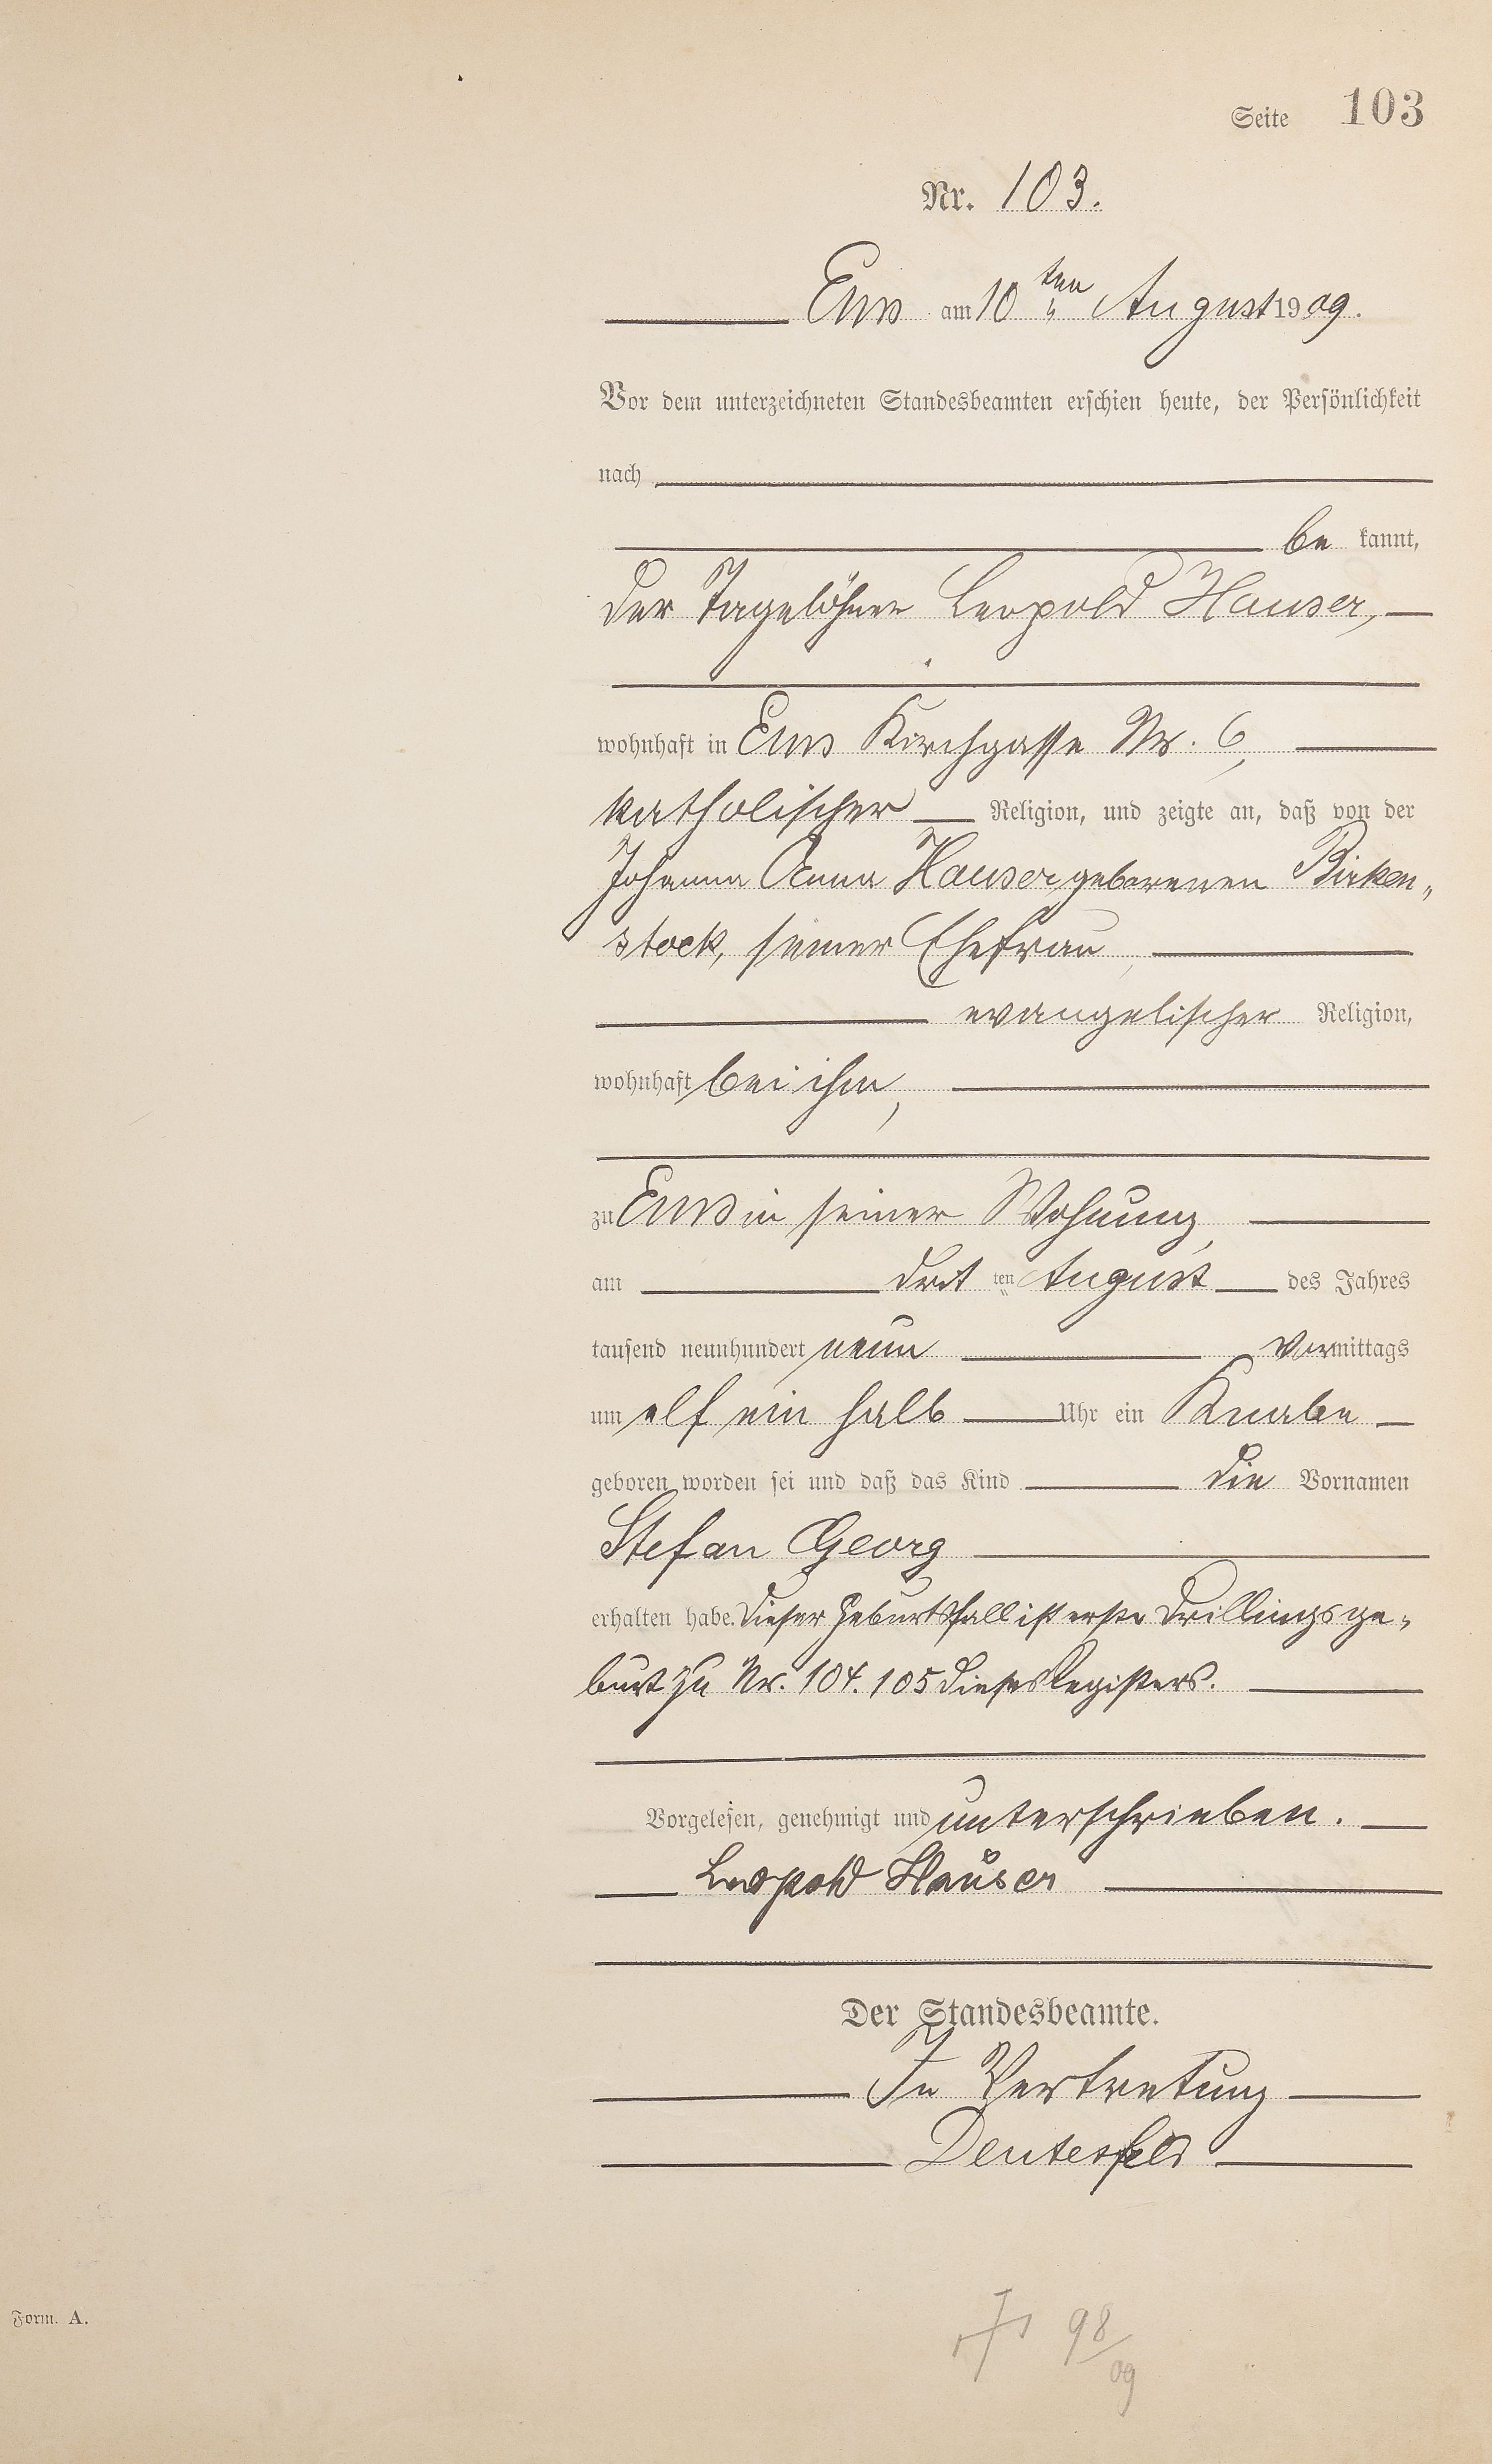 Seite 103
Nr. 103.
Ems am 10ten August 1909.
Vor dem unterzeichneten Standesbeamten erschien heute, der Persönlichkeit
nach
be kannt,
der Tagelöhner Leopold Hauser,
wohnhaft in Ems Kirchgasse Nr. 6,
katholischer Religion, und zeigte an, daß von der
Johanna Anna Hauser geborenen Birken„
stock, seiner Ehefrau,
evangelischer Religion,
wohnhaft bei ihm,
zu Ems in seiner Wohnung,
am drit ten August des Jahres
tausend neunhundert neun Vormittags
um elf ein halb Uhr ein Knabe
geboren worden sei und daß das Kind die Vornamen
Stefan Georg
erhalten habe. Dieser Geburtsfall ist erste Drillingsge„
burt zu Nr. 104. 105 dieses Registers.
Vorgelesen, genehmigt und unterschrieben.
Leopold Hauser
Der Standesbeamte.
In Vertretung
Deutesfeld
98/09
Form. A.